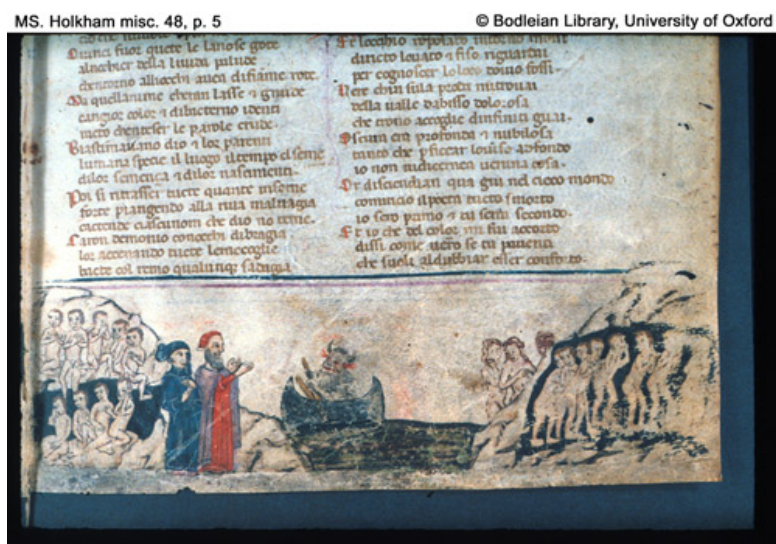 MS. Holkham misc. 48, p. 5
© Bodleian Library, University of Oxford
Quinci fuor quete le lanose gote
al nochier della liuida palude
chentorno alliocchi auea di fiame rote
Ma quellanime cheran lasse & gnude
cangiar color & dibactero identi
ratto chenteser le parole crude
Biastimauano dio & lor parenti
lumana spetie il luogo iltempo elseme
dilor semença & dilor nascimenti
Poi si ritrasser tucte quante inseme
forte piangendo alla riua maluagia
cactende ciascunom che dio no teme
Caron demonio conocchi dibragia
lor accenando tucte le racoglie
bacte col remo qualunq; sadagia
Et locchio riposato intorno mossi
diricto leuato & fiso riguardai
per cognoscer lo loco douio fossi
Vero e chin sula proda mi trouai
della ualle dabisso dolorosa
che trono accoglie dinfiniti guai
Oscura era profonda & nubilosa
tanto che p ficcar louiso alfondo
io non uidiscernea ueruna cosa
Or discendian qua giu nel cieco mondo
comincio il poeta tucto smorto
io sero primo & tu serai secondo
Et io che del color mi fui accorto
dissi come uero se tu pauenti
che suoli al dubbiar esser conforto